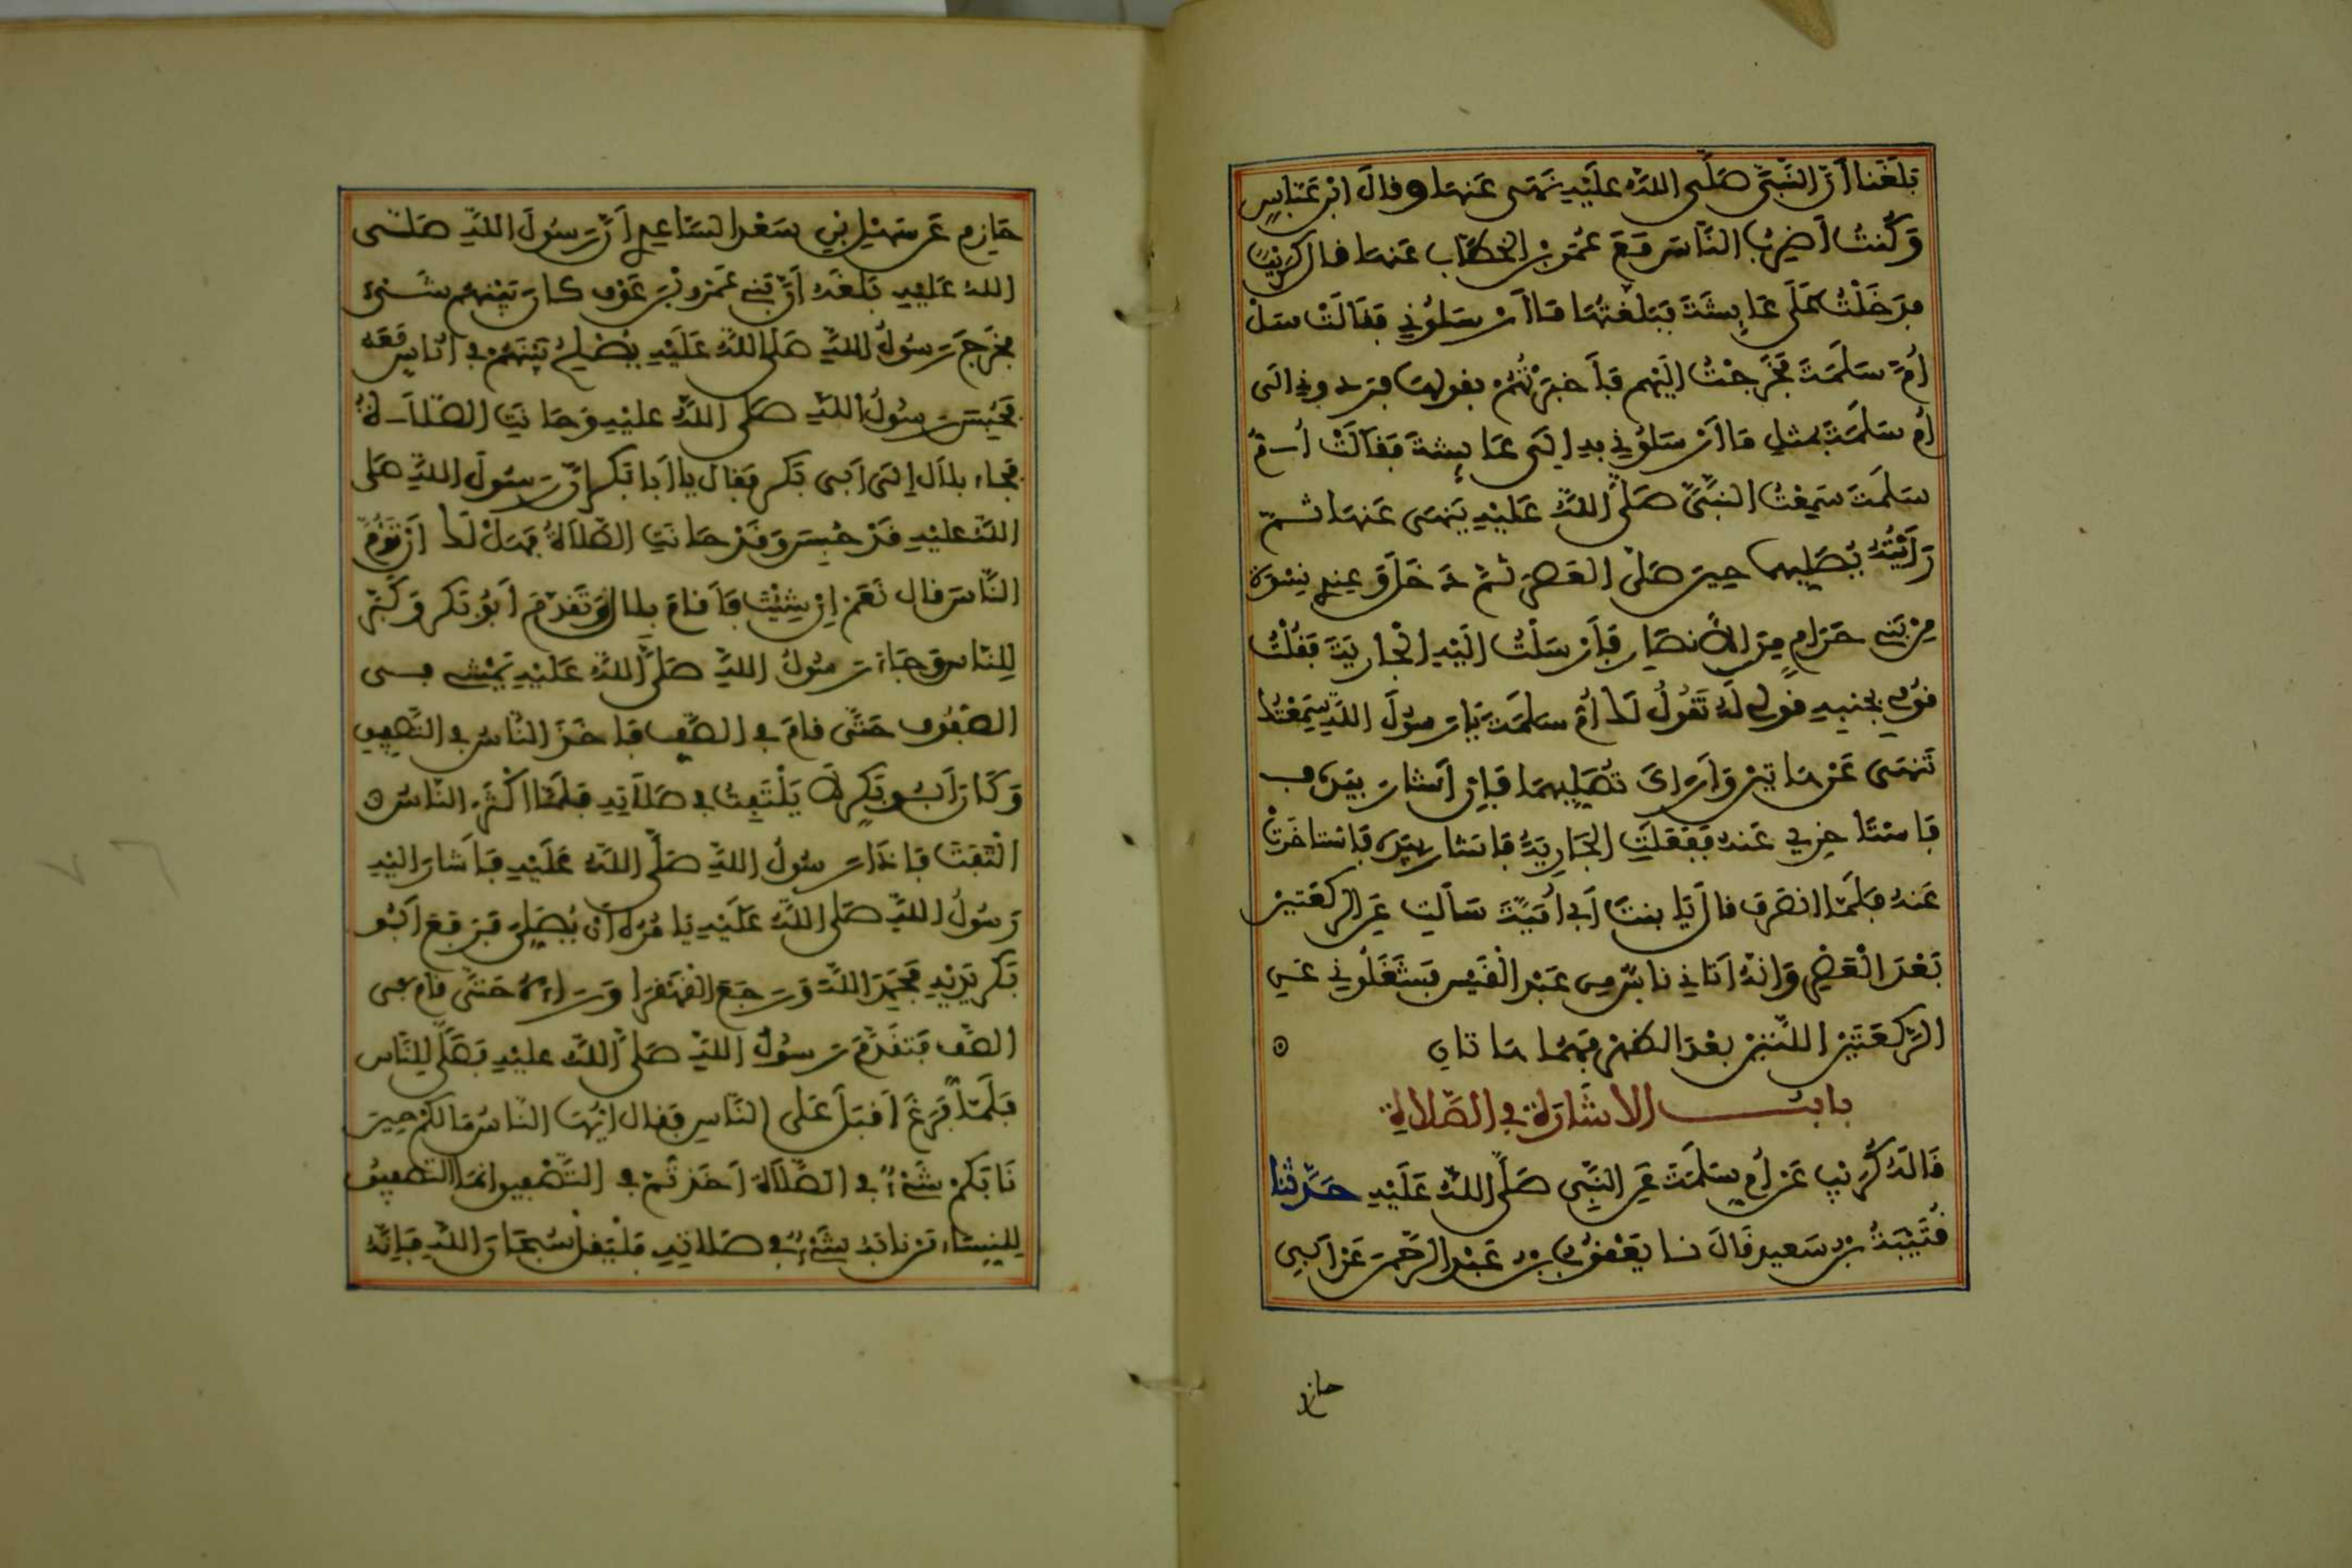 بَلَغَنَا أَنَّ النَّبِيَّ صَلَّى اللَّهُ عَلَيْهِ نَهَى عَنهَا وقالَ ابْن عَبَّاسٍ
وَكُنتُ أَضْرِبُ النَّاسَ مَعَ عُمَرَ بْنِ الخَطَّاب عَنهَا قال كُرَيْبٌ
فدَخَلْتُ عَلَى عَائِشَةَ فَبَلَّغْتُهَا مَا أَرْسَلُونِي فَقَالَتْ سَلْ
أُمَّ سَلَمَةَ فَخَرَجْتُ إلَيْهِم فَأَخْبَرْتُهُمْ بقولهَا فردوني الى
أُم سَلَمَةَ بمثلِ مَا أَرْسَلُونِي بهِ إلَى عَائِشةَ فَقَالَتْ أُمُّ
سَلَمَةَ سَمِعْتُ النبَّيَّ صَلَّى اللَّهُ عَلَيْهِ يَنهَى عَنهَا ثُمَّ
رَأَيْتُهُ يُصَلِّيهِمَا حِينَ صَلَّى العَصْرَ ثُمَّ دَخَلَ وَعِندِي نِسْوَةٌ
مِنْ بَنِي حَرَامٍ مِنَ الأَنصَارِ فَأَرْسَلْتُ إلَيْهِ الْجَارِيَةَ فَقُلْتُ
قُومِي بجنبهِ قُولِي لَهُ تَقُولُ لَكَ أُمُّ سَلَمَةَ يَا رَسُولَ اللَّهِ سَمِعْتُكَ
تَنهَى عَنْ هَاتَيْنِ وَأَرَاكَ تُصَلِّيهِمَا فَإِن أَشَارَ بيَدِهِ
فَاسْتَأخِرِي عَنهُ فَفَعَلَتِ الجَارِيَةُ فَاشَارَ بيَدِهِ فَاسْتَاخَرَتْ
عَنهُ فَلَمَّا انصَرَفَ قالَ يَا بنتَ أَبِي أُمَيَّةَ سَأَلتِ عَنِ الرَّكعَتينِ
بَعْدَ الْعَصْرِ وَإنهُ أتَانِي نَاسٌ مِن عَبْدِ الْقَيْسِ فَشَغَلُونِي عَنِ
الرَّكعَتَيْنِ اللَّتَيْنِ بعْدَ الظهْرِ فَهُمَا هَاتانِ
بابُ الاشَارَةِ في الصَّلاةِ
قَالَهُ كُرَيْب عَنْ أُمِّ سَلَمَةَ عَنِ النَّبِيِّ صَلَّى اللَّهُ عَلَيْهِ حَدَّثَنَا
قُتَيْبَةُ بن سَعِيدٍ قَالَ نا يَعْقُوبُ بن عَبْدِ الرَّحْمَنِ عَنْ أَبِي
حازم
حَازِم عَن سَهْلِ بْنِ سَعْدٍ السَّاعِدِي أَنَّ رَسُولَ اللَّهِ صَلَّى
اللهُ عَلَيْهِ بَلَغَهُ أَنَّ بَنِي عَمْرِو بْنِ عَوْفٍ كَانَ بَيْنَهُم شَيْء
فخَرَجَ رَسُولُ اللَّهِ صَلَّى اللَّهُ عَلَيْهِ يُصْلِحُ بَيْنَهُمْ فِي أُنَاسٍ مَعَهُ
فَحُبِسَ رَسُولُ اللَّهِ صَلَّى اللَّهُ عَلَيْهِ وَحَانَتِ الصَّلاَةُ
فَجَاءَ بلاَل إلَى أَبِي بَكرٍ فَقَالَ يا أَبَا بَكرٍ إنَّ رَسُولَ اللَّهِ صَلَّى
اللَّهُ عَلَيْهِ قَدْ حُبِسَ وَقَدْ حَانَتِ الصَّلاَةُ فَهَلْ لَكَ أَنْ تَؤُمَّ
النَّاسَ قال نَعَمْ إِنْ شِئْتَ فَأَقَامَ بِلال وَتَقَدَّمَ أَبُو بَكر وَكَبَّرَ
لِلنَّاسِ وَجَاءَ رَسُولُ اللَّهِ صَلَّى اللَّهُ عَلَيْهِ يَمْشِي فِي
الصُّفُوفِ حَتَّى قامَ فِي الصَّفِّ فَأَخَذَ النَّاسُ فِي التَّصْفِيقِ
وَكَانَ أَبُو بَكرٍ لاَ يَلْتَفِتُ فِي صَلاَتِهِ فَلَمَّا أَكْثَرَ النَّاسُ
الْتَفَتَ فَإذَا رَسُولُ اللَّهِ صَلَّى اللَّهُ عَلَيْهِ فَأَشَارَ إلَيْهِ
رَسُولُ اللَّهِ صَلَّى اللَّهُ عَلَيْهِ يَامُرُهُ أَن يُصَلِّيَ فَرَفَعَ أَبُو
بَكر يَدَيْهِ فَحَمِدَ اللَّهَ وَرَجَعَ الْقَهْقَرَا وَرَاءَهُ حَتَّى قَامَ فِي
الصَّفِّ فَتَقَدَّمَ رَسُولُ اللَّهِ صَلَّى اللَّهُ عَلَيْهِ فَصَلَّى لِلنَّاسِ
فَلَمَّا فَرَغَ أَقْبَلَ عَلَى النَّاسِ فَقَال أَيُّهَا النَّاسُ مَا لَكُمْ حِينَ
نَابَكُمْ شَيْءٌ فِي الصَّلاَةِ أَخَذتُمْ فِي التَّصْفِيقِ إنَّمَا التَّصْفِيقُ
لِلنِسَاءِ مَنْ نَابَهُ شَيْءٌ فِي صَلاَتِهِ فَلْيَقُلْ سُبْحَانَ اللَّهِ فَإِنَّهُ